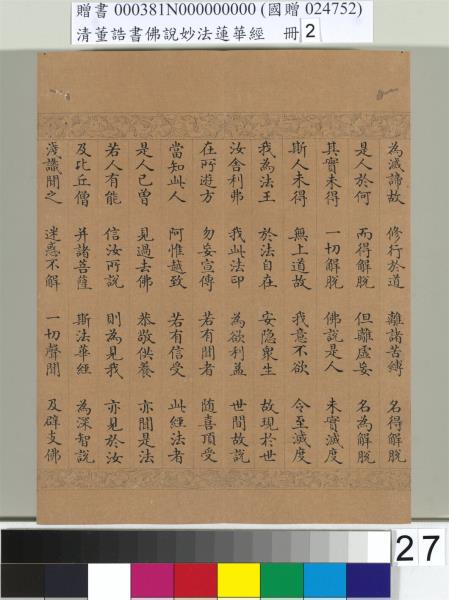 贈書 000381N000000000 (國贈 024752)
清董誥書佛說妙法蓮華經 冊 2
為滅諦故 修行於道 離諸苦縛 名得解脫
是人於何 而得解脫 但離虛妄 名為解脫
其實未得 一切解脫 佛說是人 未實滅度
斯人未得 無上道故 我意不欲 令至滅度
我為法王 於法自在 安隱衆生 故現於世
汝舍利弗 我此法印 為欲利益 世間故說
在所遊方 勿妄宣傳 若有聞者 隨喜頂受
當知此人 阿惟越致 若有信受 此經法者
是人已曾 見過去佛 恭敬供養 亦聞是法
若人有能 信汝所說 則為見我 亦見於汝
及比丘僧 并諸菩薩 斯法華經 為深智說
淺識聞之 迷惑不解 一切聲聞 及辟支佛
27